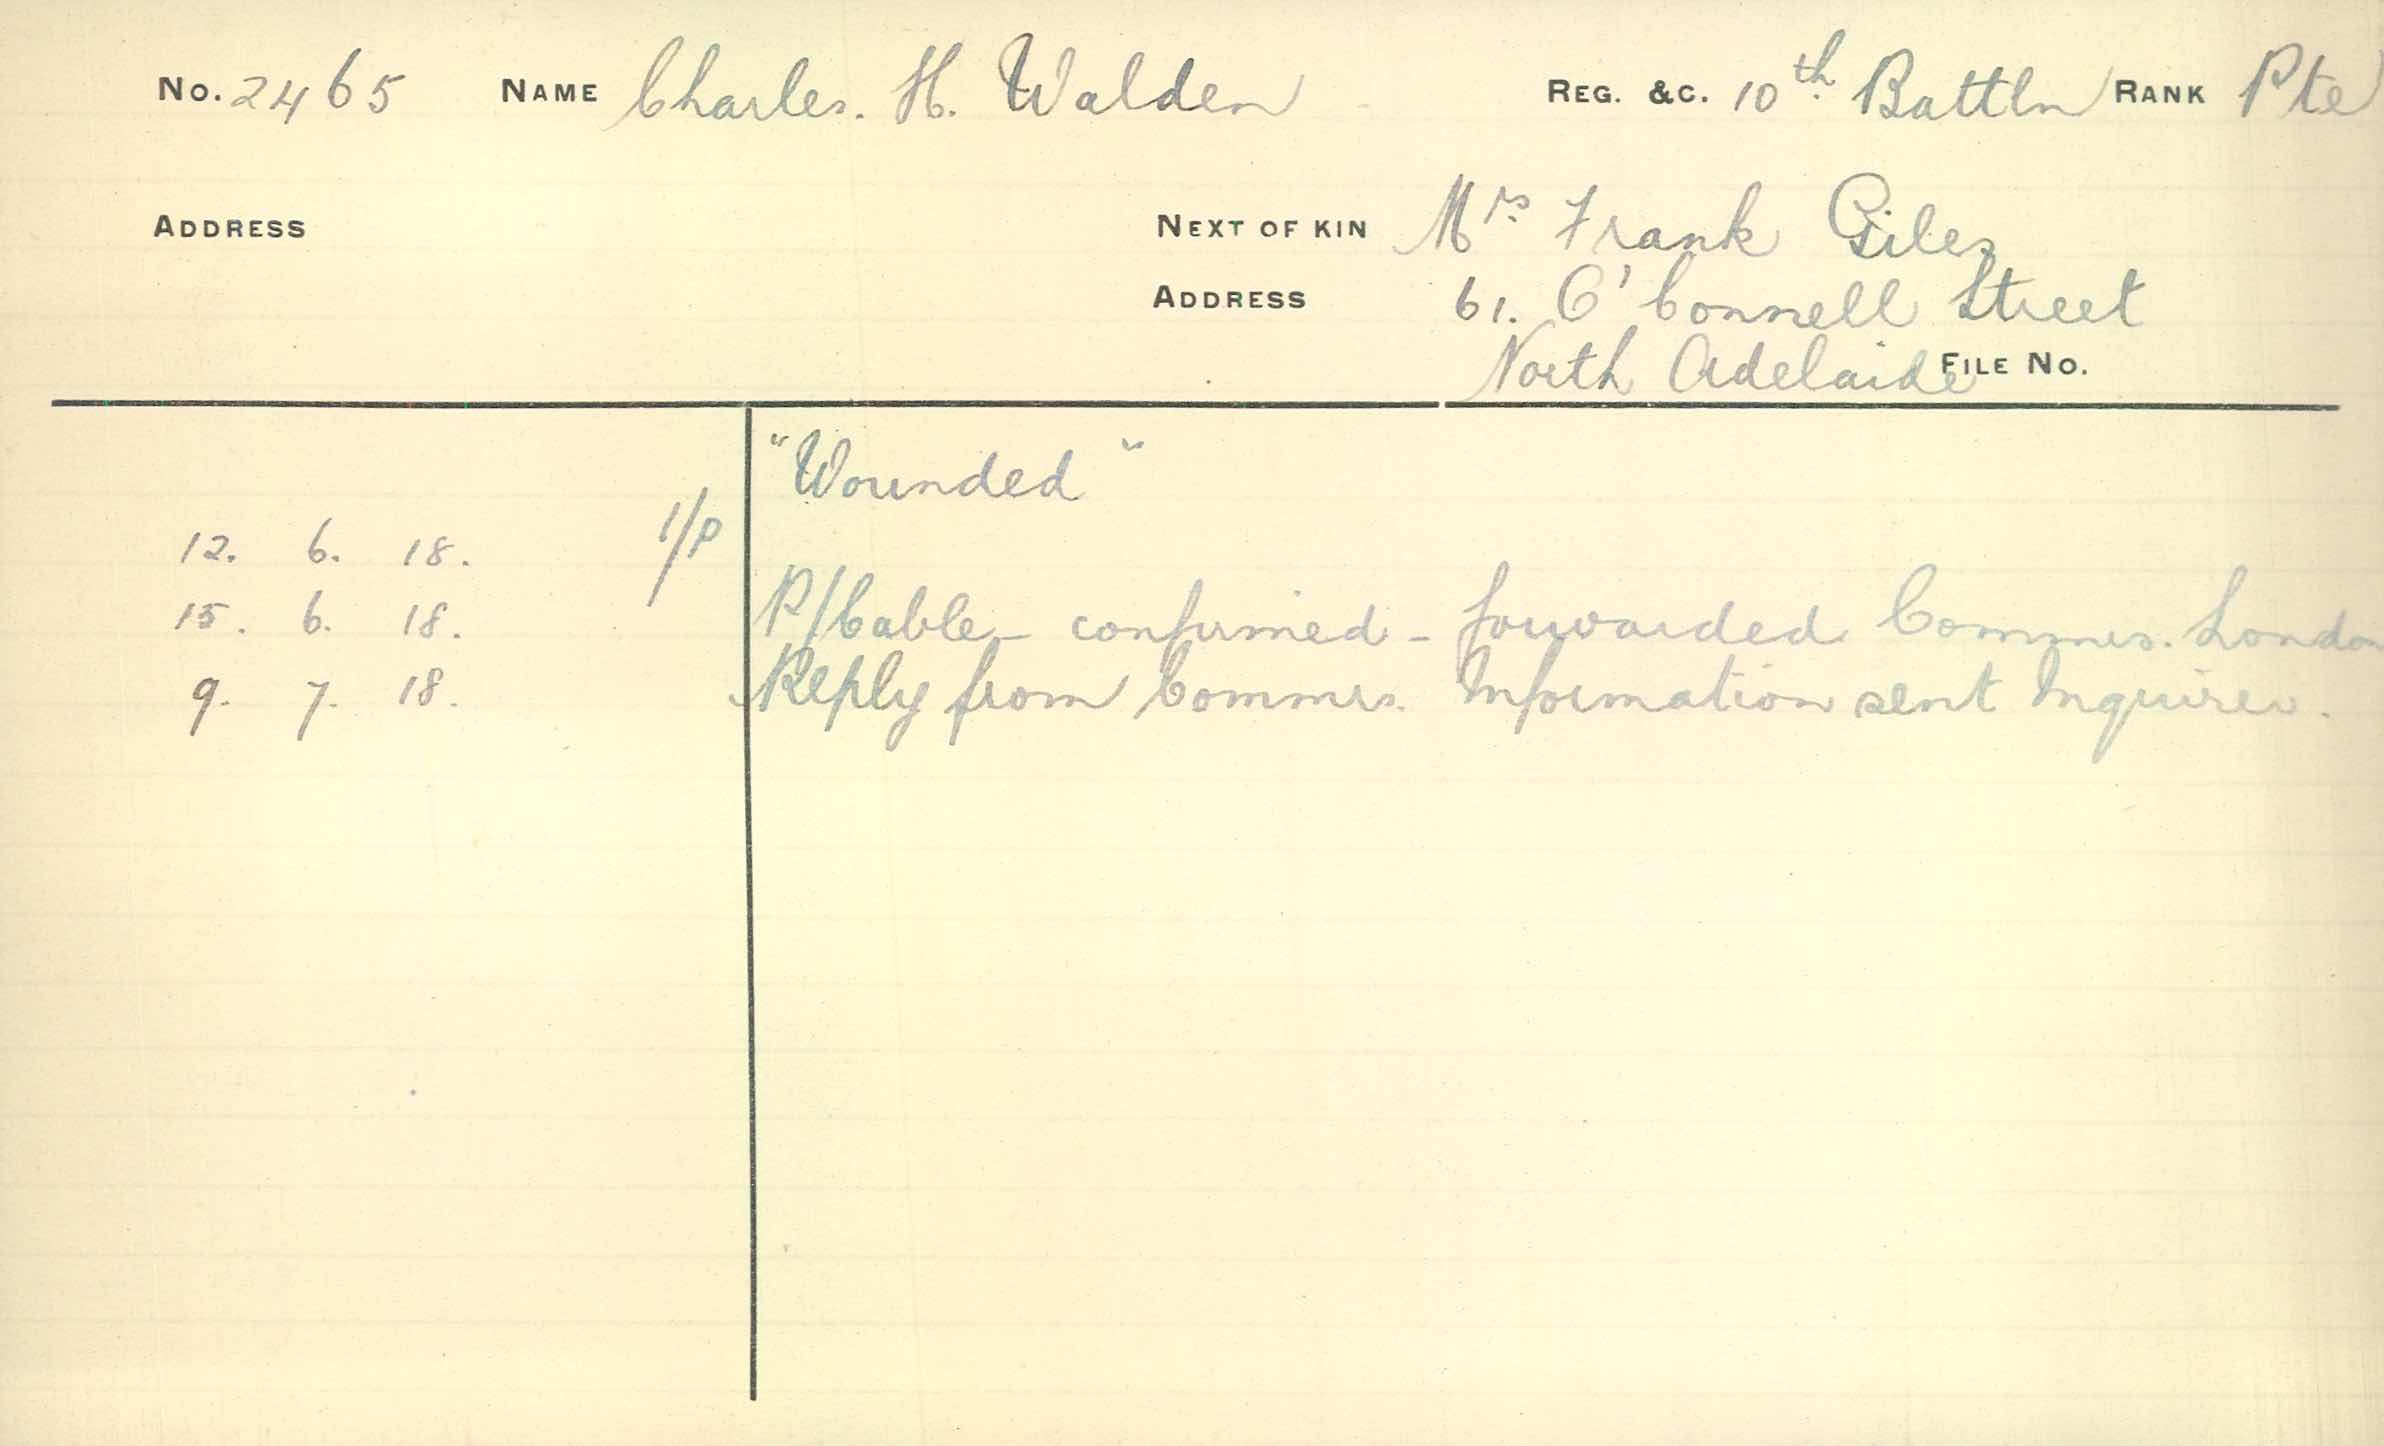 No. 2465 NAME Charles. H. Walden REG. &C. 10th Battln RANK Pte
ADDRESS NEXT OF KIN Mrs Frank Giles
ADDRESS 61. O'Connell Street
North Adelaide FILE No.
"Wounded"
12. 6. 18. 1/P
15. 6. 18. P/Cable - confirmed - forwarded Commrs. London
9. 7. 18. Reply from Commrs. Information sent Inquirer.